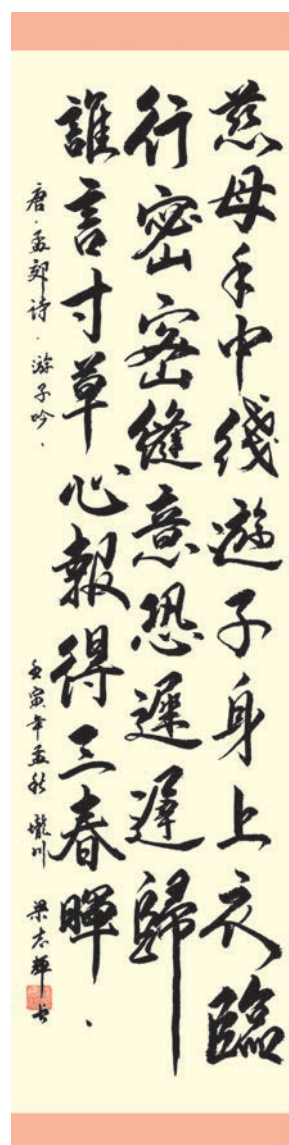 慈母手中綫遊子身上衣臨
行密密縫意恐遲遲歸
誰言寸草心報得三春暉、
唐·孟郊詩·游子吟、
壬寅年孟秋 壠川 梁志輝書